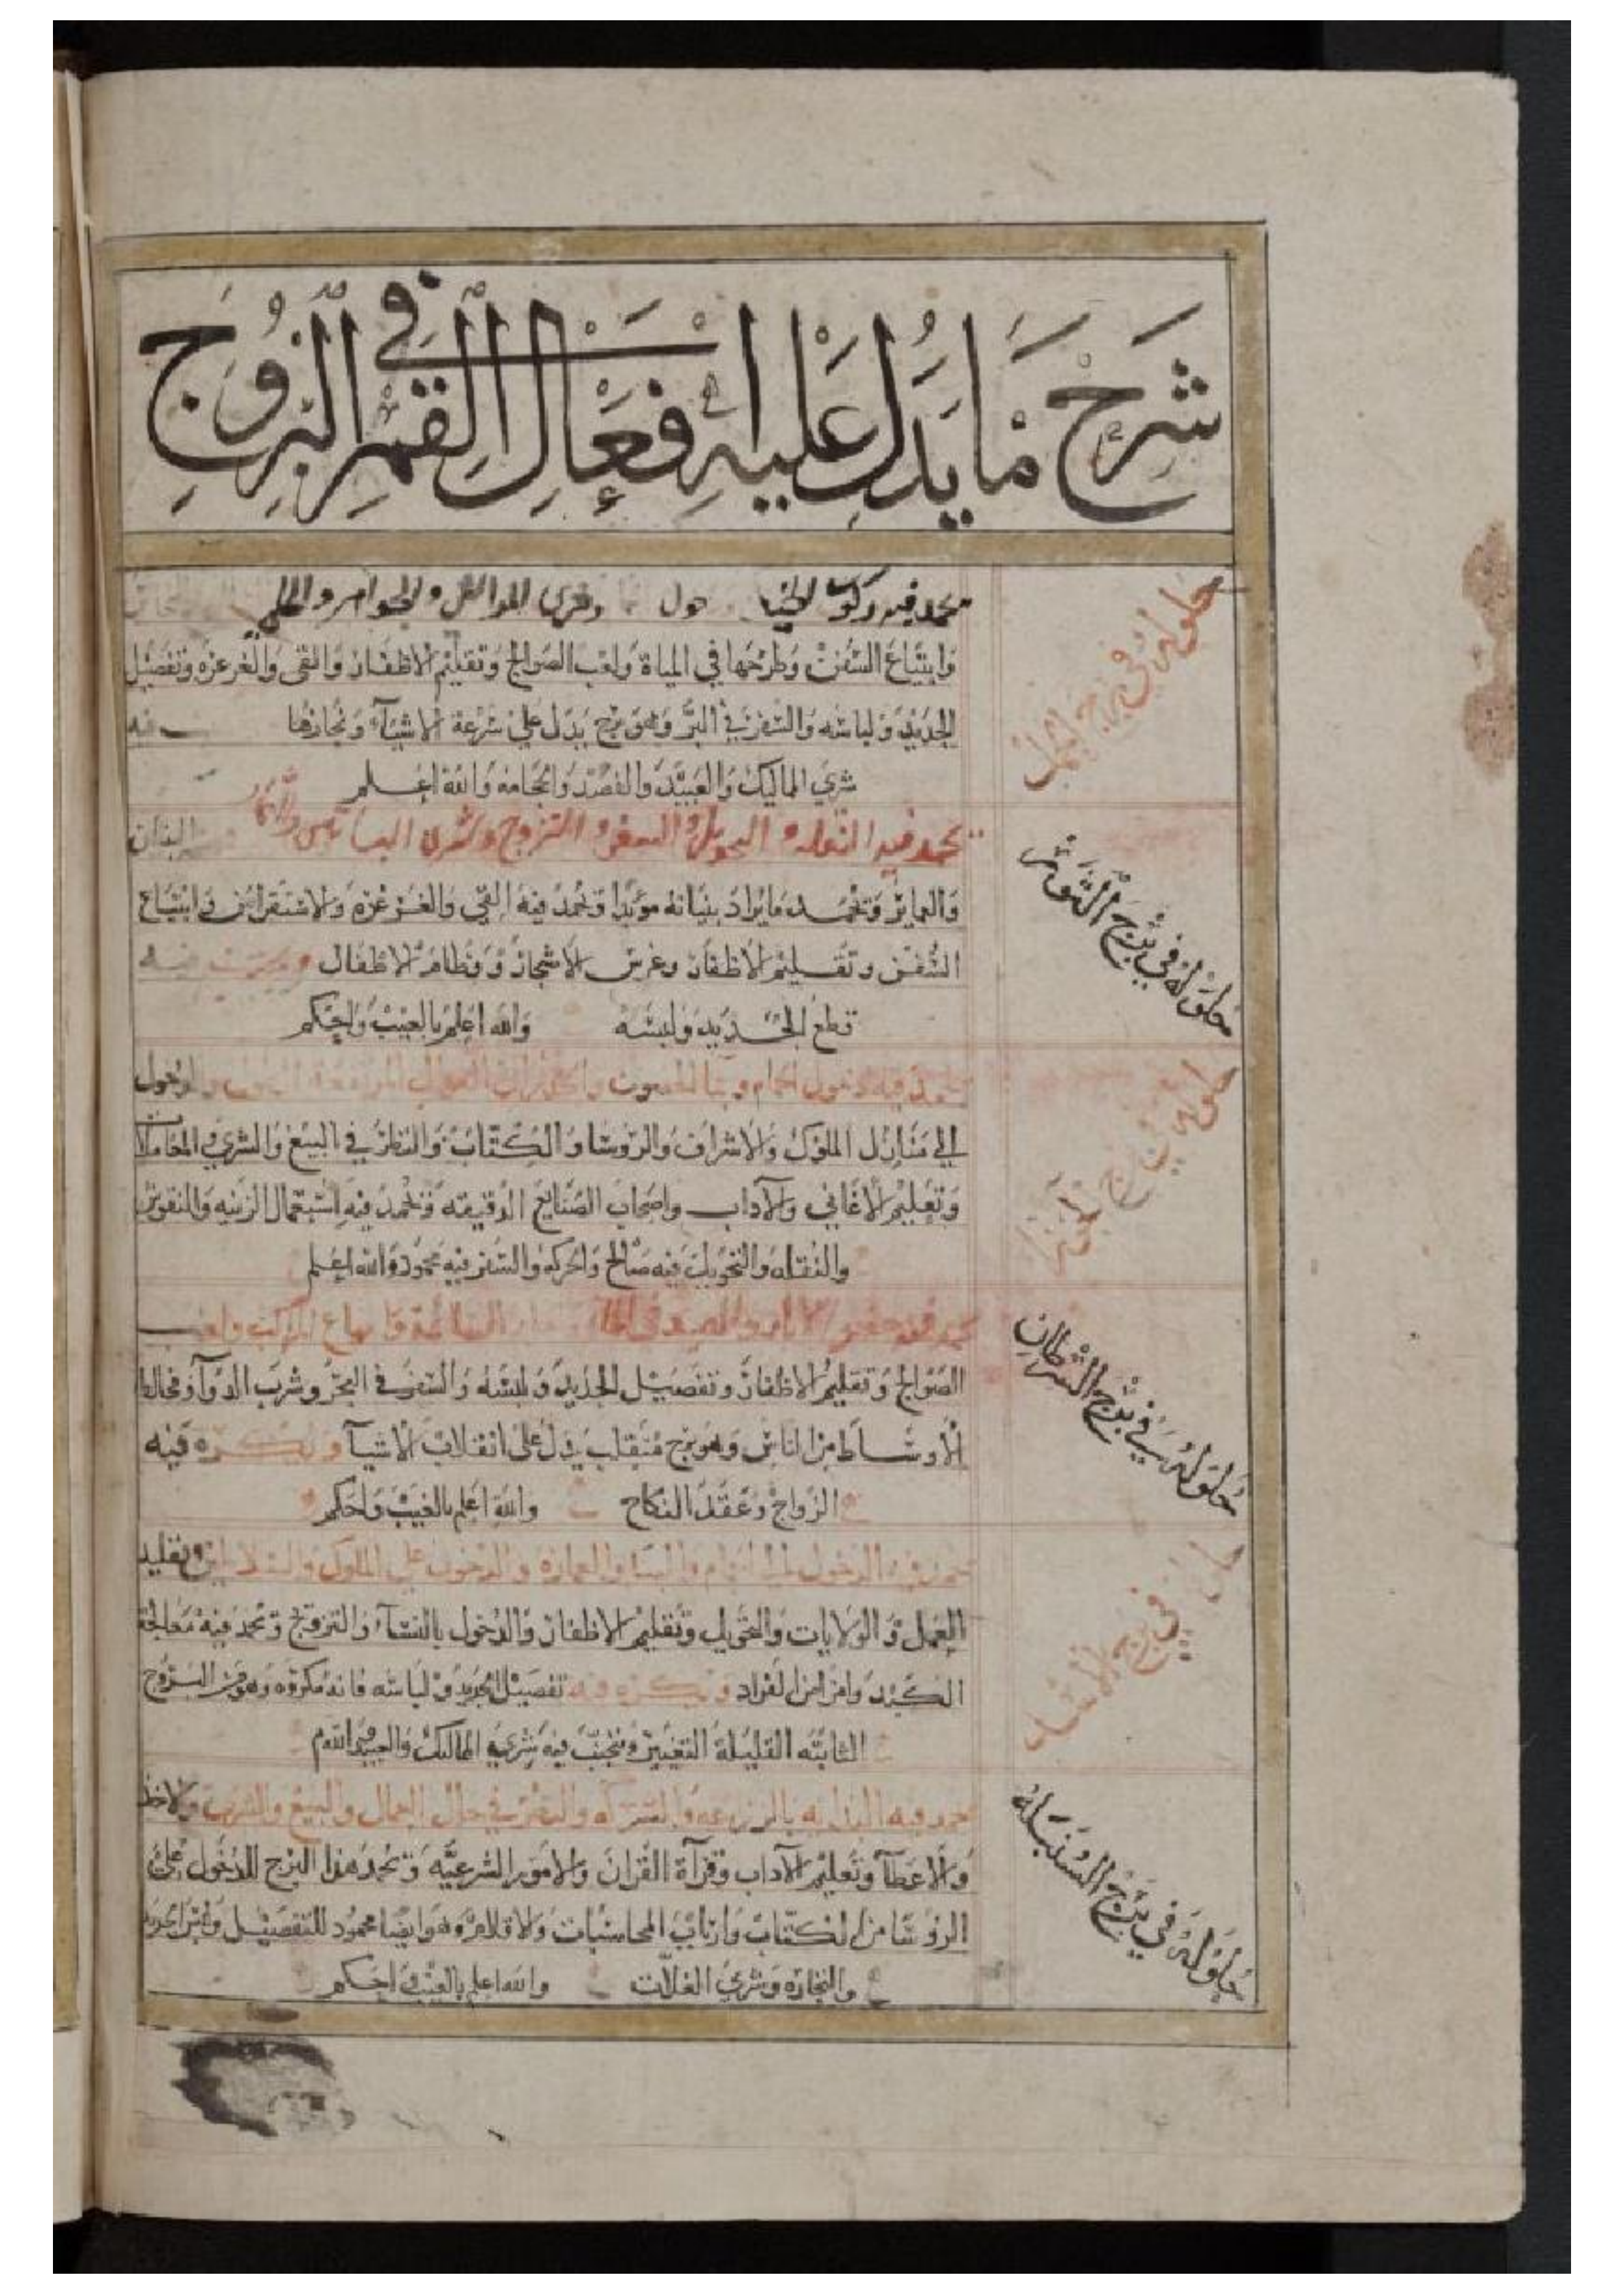 شرح ما يدل عليه افعال القمر في البروج
حلوله في برج الحمل
يحمد فيه ركوب الخيل وشرى والجواهر والحلى
وابتياع السفن وطرحها في المياة ولعب الصوالج وتقليم الاظفار والقى والغرغره وتفصيل
الجديد ولباسه والسفر في البر وهو برج يدل على سرعة الاشيآء ونجازها فيه
شري المماليك والعبيد والفصد والحجامه والله اعلم
حلوله في برج الثور
يحمد فيه النقله والتحويل والسفر والتزوج وشرى البساتين البنيان
والعماير وتحمد ما يراد بنيانه مؤبدا وتحمد فيه القي والغرغره والاستفراغ وابتياع
السفن وتقليم الاظفار وغرس الاشجار وفطام الاطفال ويكره فيه
قطع الجديد ولبسه والله اعلم بالغيب واحكم
حلوله في برج الجوزا
يحمد فيه دخول الحمام والدخول
الي منازل الملوك والاشراف والروسا والكتاب والنظر في البيع والشري والمعاملات
وتعليم الاغاني والآداب واصحاب الصنايع الدقيقه وتحمد فيه استعمال الزينه والنقوش
والنقله والتحويل فيه صالح والحركه والسفر فيه محمود والله اعلم
حلوله في برج السرطان
يحمد فيه حفر الابار والصيد في الما وابتياع المراكب ولعب
الصوالج وتقليم الاظفار وتفصيل الجديد ولبسه والسفر في البحر وشرب الدوآ ومخالطة
الأوساط من الناس وهو برج منقلب يدل على انقلاب الاشيآ ويكره فيه
الزواج وعقد النكاح والله اعلم بالغيب واحكم
حلوله في برج الأسد
يحمد فيه الدخول الى الحمام والبنا والعماره والدخول على الملوك والسلاطين وتقليد
العمل والولايات والتحويل وتقليم الاظفار والدخول بالنسآء والتزوج وتحمد فيه معالجة
الكبد وامراض الفواد ويكره فيه تفصيل الجديد ولباسه فانه مكروه وهو من البروج
الثابته القليلة التغيير وتجنب فيه شري المماليك والعبيد
حلوله في برج السنبله
يحمد فيه البدايه بالزراعه والشركه والسفر في والبيع والشرى والاخذ
والاعطآ وتعليم الآداب وقرآة القران والامور الشرعيه وتحمد هذا البرج للدخول على
الروسا من الكتاب وارباب المحاسبات والاقلام وهو ايضا محمود للتفصيل ولبس الجديد
والتجاره وشري الغلات والله اعلم بالغيب واحكم